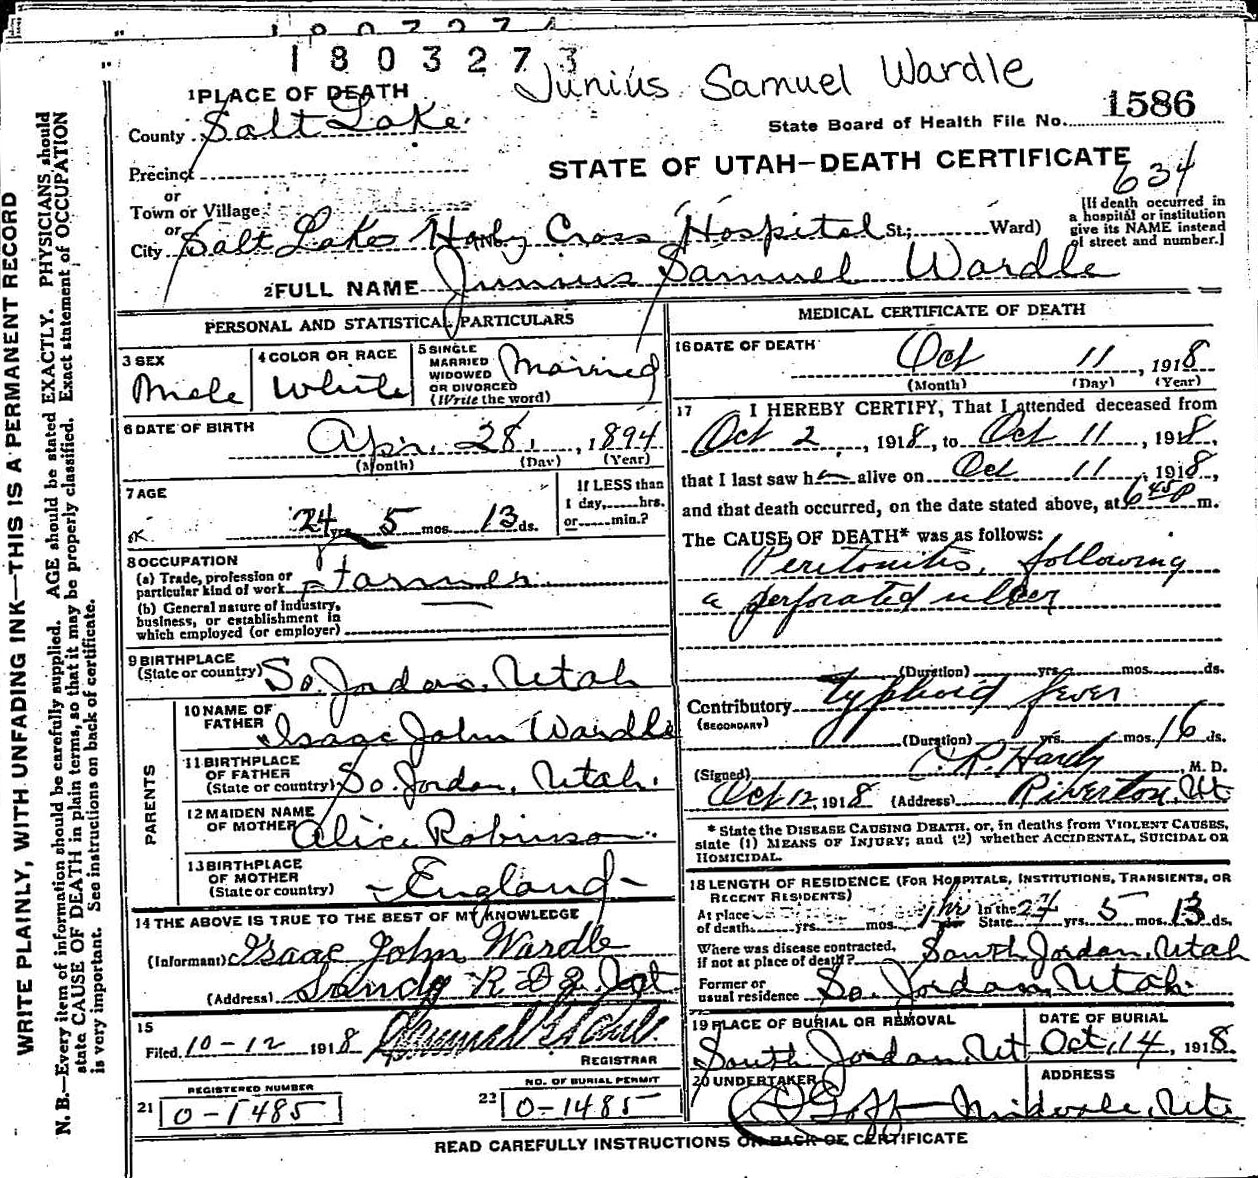 1803273
Junius Samuel Wardle
1 PLACE OF DEATH
County Salt Lake
State Board of Health File No. 1586
Precinct
STATE OF UTAH—DEATH CERTIFICATE
634
or
Town or Village
or
City Salt Lake No. Holy Cross Hospital St.; Ward)
[If death occurred in a hospital or institution give its NAME instead of street and number.]
2 FULL NAME Junius Samuel Wardle
PERSONAL AND STATISTICAL PARTICULARS
3 SEX
Male
4 COLOR OR RACE
White
5 SINGLE MARRIED WIDOWED OR DIVORCED (Write the word)
Married
6 DATE OF BIRTH
Apr. 28, 1894
(Month) (Day) (Year)
7 AGE
24 yrs. 5 mos. 13 ds.
If LESS than 1 day, hrs. or min.?
8 OCCUPATION
(a) Trade, profession or particular kind of work Farmer
(b) General nature of industry, business, or establishment in which employed (or employer)
9 BIRTHPLACE
(State or country) So. Jordan, Utah
PARENTS
10 NAME OF FATHER Isaac John Wardle
11 BIRTHPLACE OF FATHER (State or country) So. Jordan, Utah.
12 MAIDEN NAME OF MOTHER Alice Robinson
13 BIRTHPLACE OF MOTHER (State or country) - England -
14 THE ABOVE IS TRUE TO THE BEST OF MY KNOWLEDGE
(Informant) Isaac John Wardle
(Address) Sandy R D 2
15
Filed 10-12 1918
REGISTRAR
REGISTERED NUMBER
21 0-1485
NO. OF BURIAL PERMIT
22 0-1485
MEDICAL CERTIFICATE OF DEATH
16 DATE OF DEATH
Oct 11, 1918
(Month) (Day) (Year)
17 I HEREBY CERTIFY, That I attended deceased from
Oct 2, 1918, to Oct 11, 1918,
that I last saw h alive on Oct 11, 1918,
and that death occurred, on the date stated above, at 6 45 P m.
The CAUSE OF DEATH* was as follows:
Peritonitis, following
a perforated ulcer
(Duration) yrs. mos. ds.
Contributory Typhoid fever
(SECONDARY)
(Duration) yrs. mos. 16 ds.
(Signed) C. R. Hardy, M. D.
Oct 12, 1918 (Address) Riverton, Ut
* State the DISEASE CAUSING DEATH, or, in deaths from VIOLENT CAUSES,
state (1) MEANS OF INJURY; and (2) whether ACCIDENTAL, SUICIDAL OR
HOMICIDAL.
18 LENGTH OF RESIDENCE (FOR HOSPITALS, INSTITUTIONS, TRANSIENTS, OR
RECENT RESIDENTS)
At place of death yrs. mos. 1 hr In the State 24 yrs. 5 mos. 13 ds.
Where was disease contracted, if not at place of death? South Jordan, Utah
Former or usual residence So. Jordan, Utah.
19 PLACE OF BURIAL OR REMOVAL
South Jordan, Ut
DATE OF BURIAL
Oct. 14, 1918.
20 UNDERTAKER
Goff
ADDRESS
Midvale, Ut
READ CAREFULLY INSTRUCTIONS ON BACK OF CERTIFICATE
WRITE PLAINLY, WITH UNFADING INK—THIS IS A PERMANENT RECORD
N. B.—Every item of information should be carefully supplied. AGE should be stated EXACTLY. PHYSICIANS should
state CAUSE OF DEATH in plain terms, so that it may be properly classified. Exact statement of OCCUPATION
is very important. See instructions on back of certificate.